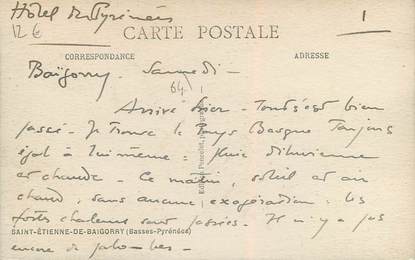 Hôtel des Pyrénées
1
12 €
CARTE POSTALE
CORRESPONDANCE
ADRESSE
Baïgorry. Samedi -
64
Arrivé hier - Tout s'est bien
passé - Je trouve le Pays Basque toujours
égal à lui même : pluie diluvienne
et chaude - Ce matin, soleil et air
chaud, sans aucune exagération : les
fortes chaleurs sont passées - Il n'y a pas
SAINT-ÉTIENNE-DE-BAIGORRY (Basses-Pyrénées)
encore de palombes -